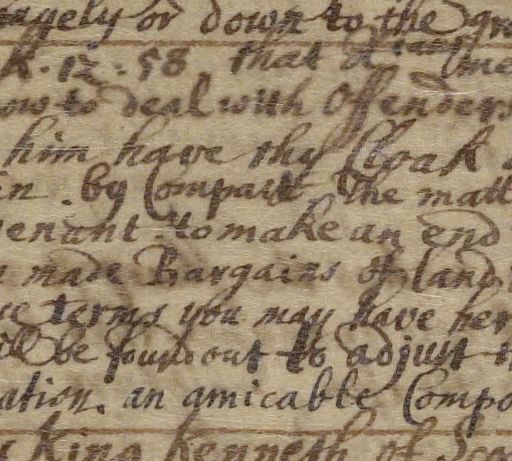 or down to the gr
K. 12. 58 that a me
how to deal with Offenders
him have thy Cloak
in. by Compact, the matt
venant. to make an end
made Bargains of land
terms you may have her
ill be found out to adjust
ation. an amicable Compo
King Kenneth of Sco